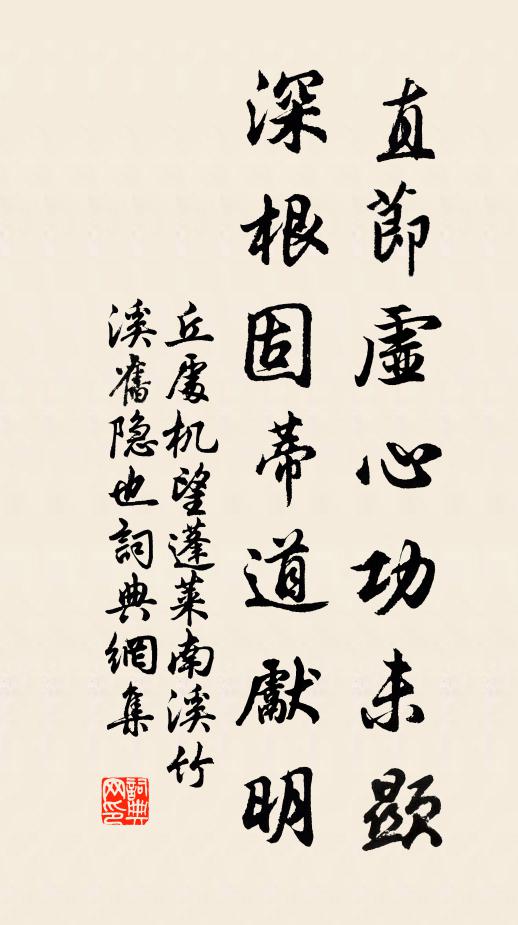 直節虛心功未顯
深根固蒂道獻明
丘處机望蓬萊南溪竹
溪舊隐也詞典網集
詞典
网印